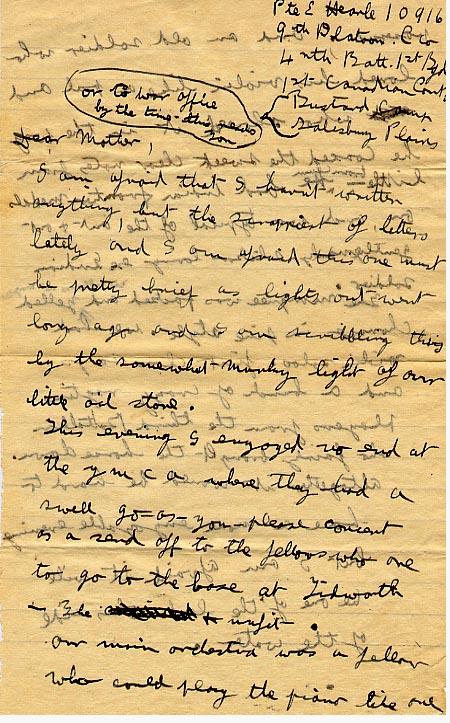 Pte E Hearle 10916
9th Platoon. C Co
4 nth Batt. 1st Bgd
1st Canadian Cont
Bustard Camp
Salisbury Plains
or to war office
by the time this
Dear Mother,
I am afraid that I havnt written
anything but the scrappiest of letters
lately and I am afraid this one must
be pretty brief as lights out went
long ago and I am scribbling this
by the somewhat murky light of our
little oil stove.
This evening I enjoyed no end at
the y m c a where they had a
swell go-as-you-please concert
as a send off to the fellows who are
to go to the base at Tidworth
- The & unfit.
Our main orchestra was a fellow
who could play the piano like one